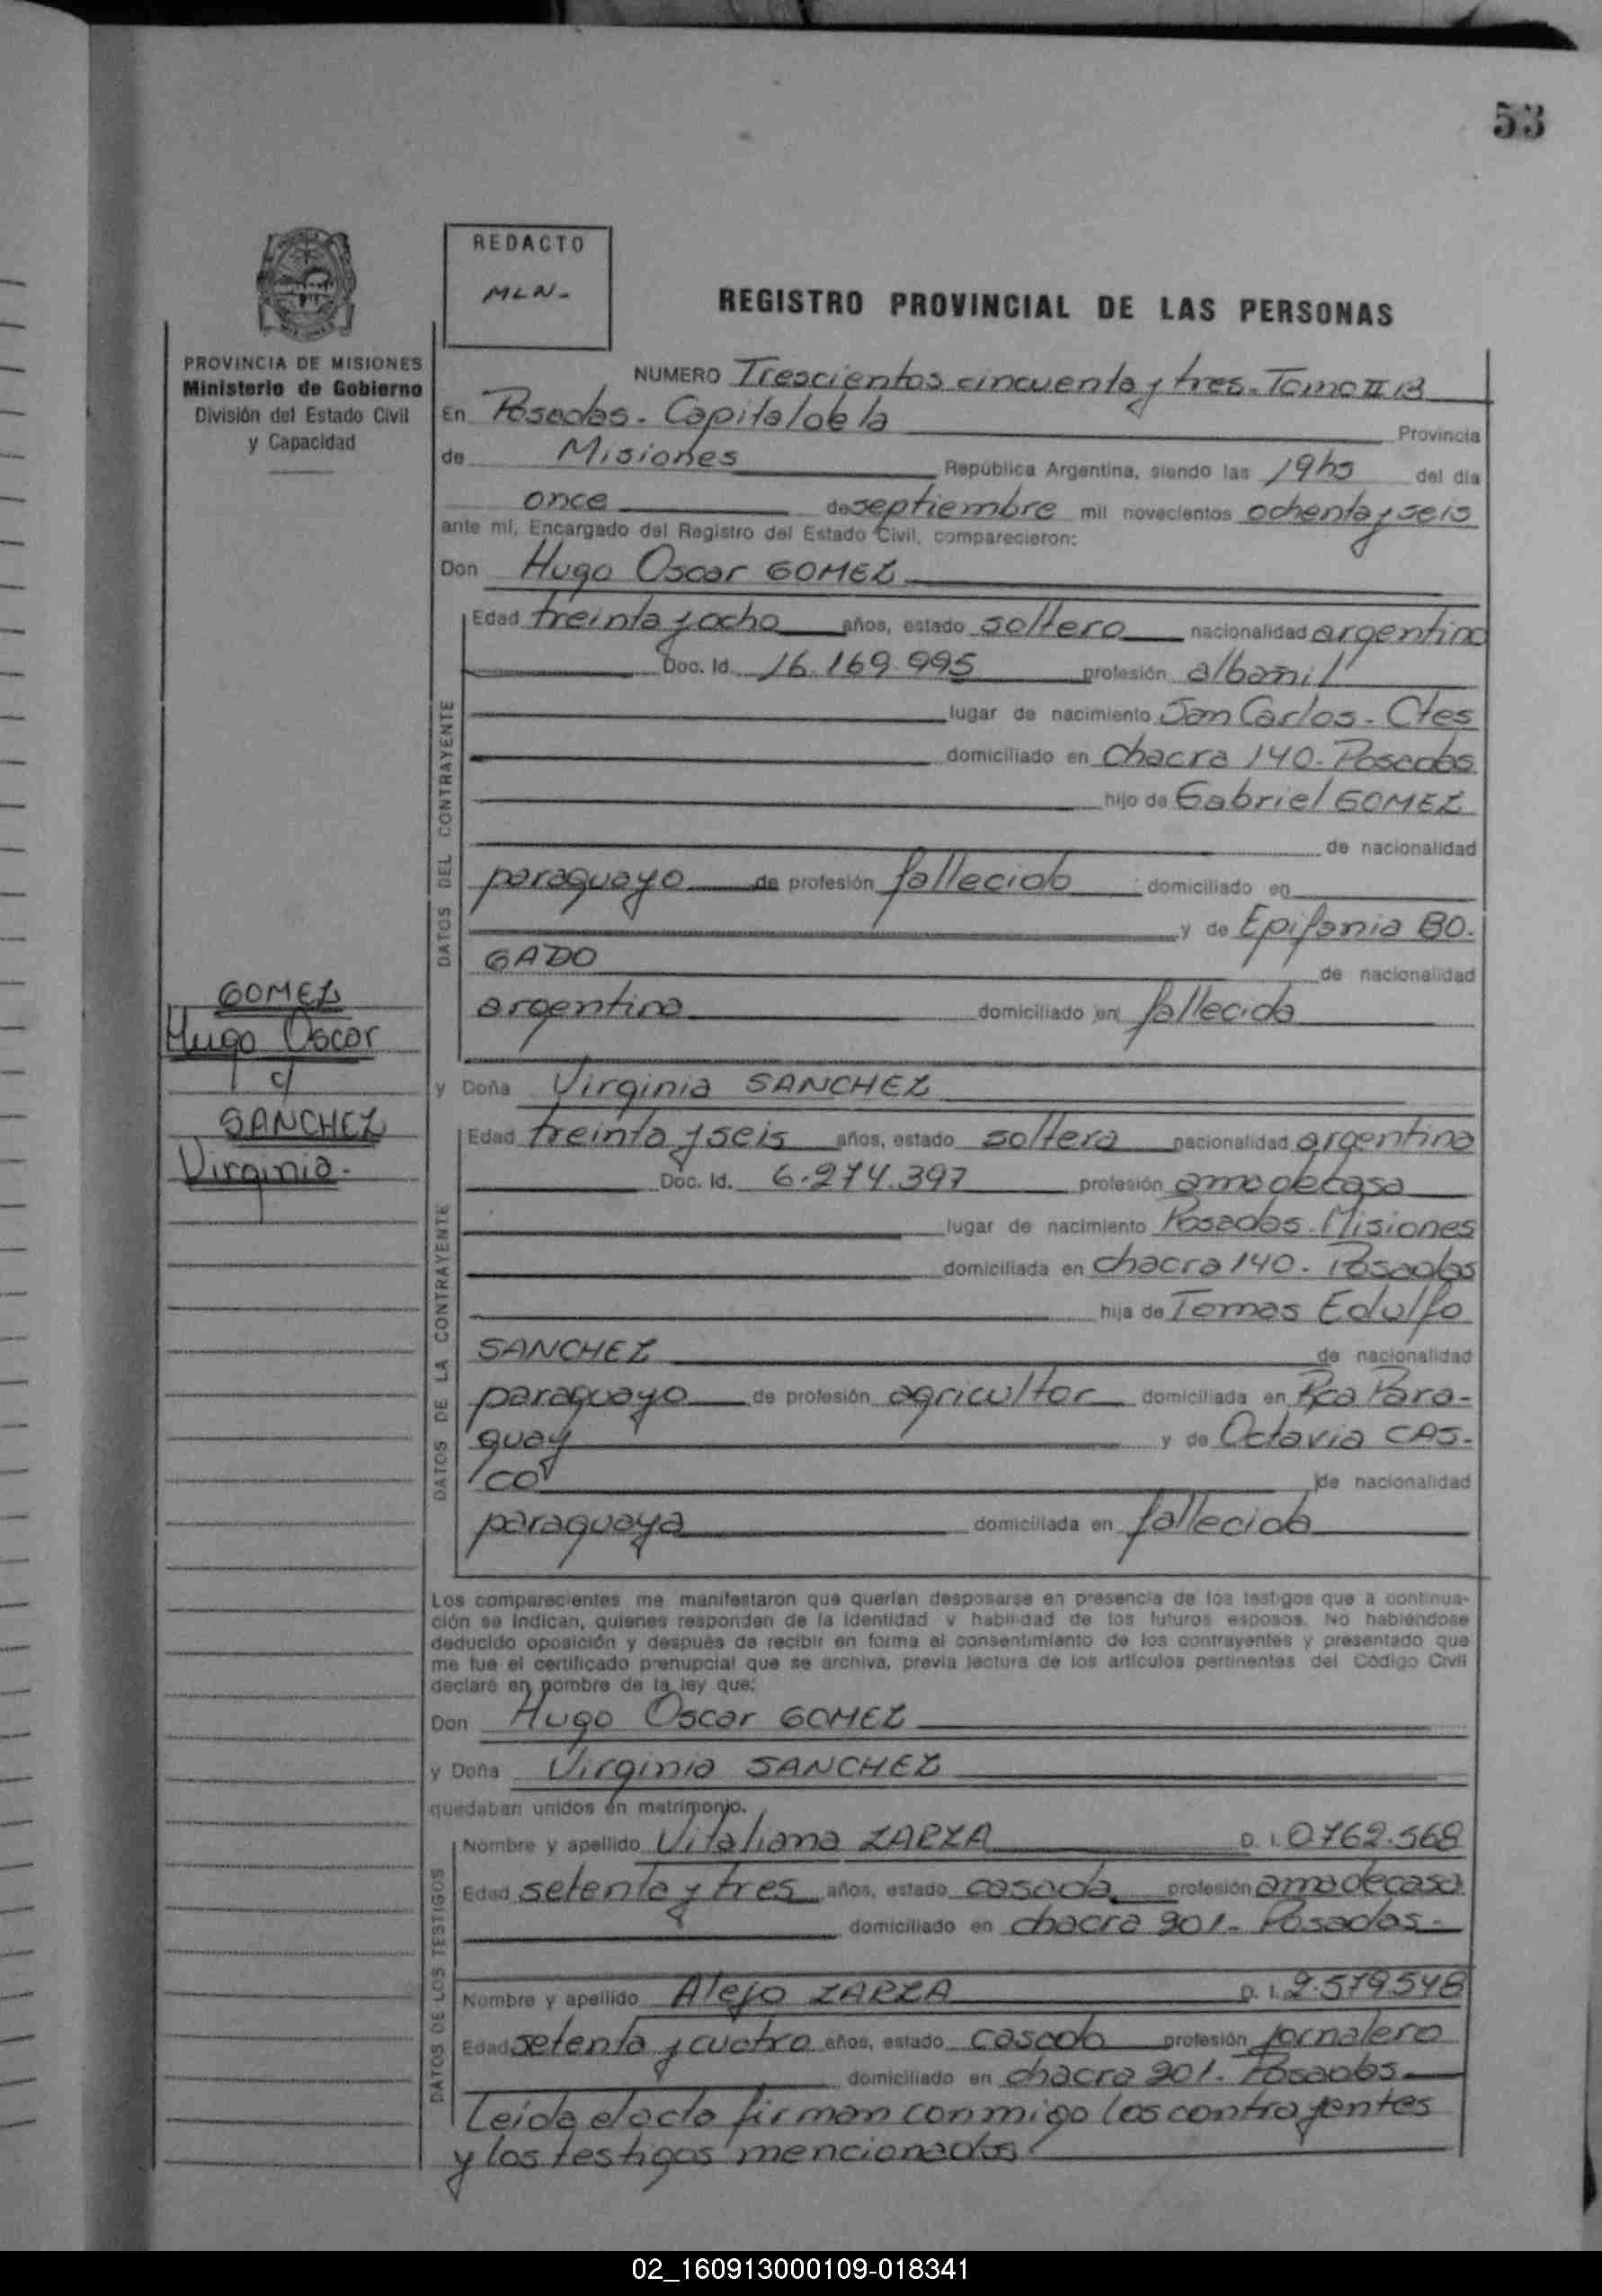 53
REDACTO
MLN-
REGISTRO PROVINCIAL DE LAS PERSONAS
PROVINCIA DE MISIONES
Ministerio de Gobierno
División del Estado Civil
y Capacidad
NUMERO Trescientos cincuenta y tres - Tomo II B
En Posadas - Capital de la Provincia
de Misiones República Argentina, siendo las 19 hs del día
once de septiembre mil novecientos ochenta y seis
ante mí, Encargado del Registro del Estado Civil, comparecieron:
Don Hugo Oscar GOMEZ
DATOS DEL CONTRAYENTE
Edad treinta y ocho años, estado soltero nacionalidad argentina
Doc. Id. 16.169.995 profesión albañil
lugar de nacimiento San Carlos - Ctes
domiciliado en chacra 140 - Posadas
hijo de Gabriel GOMEZ
de nacionalidad
paraguayo de profesión fallecido domiciliado en
y de Epifania BO-
GADO
de nacionalidad
argentina domiciliado en fallecida
GOMEZ
Hugo Oscar
c/
SANCHEZ
Virginia -
y Doña Virginia SANCHEZ
DATOS DE LA CONTRAYENTE
Edad treinta y seis años, estado soltera nacionalidad argentina
Doc. Id. 6.274.397 profesión ama de casa
lugar de nacimiento Posadas - Misiones
domiciliada en chacra 140 - Posadas
hija de Tomas Edulfo
SANCHEZ de nacionalidad
paraguayo de profesión agricultor domiciliada en Rca Para-
guay y de Octavia CAS-
CO de nacionalidad
paraguaya domiciliada en fallecida
Los comparecientes me manifestaron que querían desposarse en presencia de los testigos que a continua-
ción se indican, quienes responden de la identidad y habilidad de los futuros esposos. No habiéndose
deducido oposición y después de recibir en forma el consentimiento de los contrayentes y presentado que
me fue el certificado prenupcial que se archiva, previa lectura de los artículos pertinentes del Código Civil
declaré en nombre de la ley que:
Don Hugo Oscar GOMEZ
y Doña Virginia SANCHEZ
quedaban unidos en matrimonio.
DATOS DE LOS TESTIGOS
Nombre y apellido Vitaliana ZARZA D. I. 0762.568
Edad setenta y tres años, estado casada profesión ama de casa
domiciliado en chacra 901 - Posadas -
Nombre y apellido Alejo ZARZA D. I. 2.579.548
Edad setenta y cuatro años, estado casado profesión jornalero
domiciliado en chacra 901 - Posadas
Leída el acta firman conmigo los contrayentes
y los testigos mencionados
02_160913000109-018341